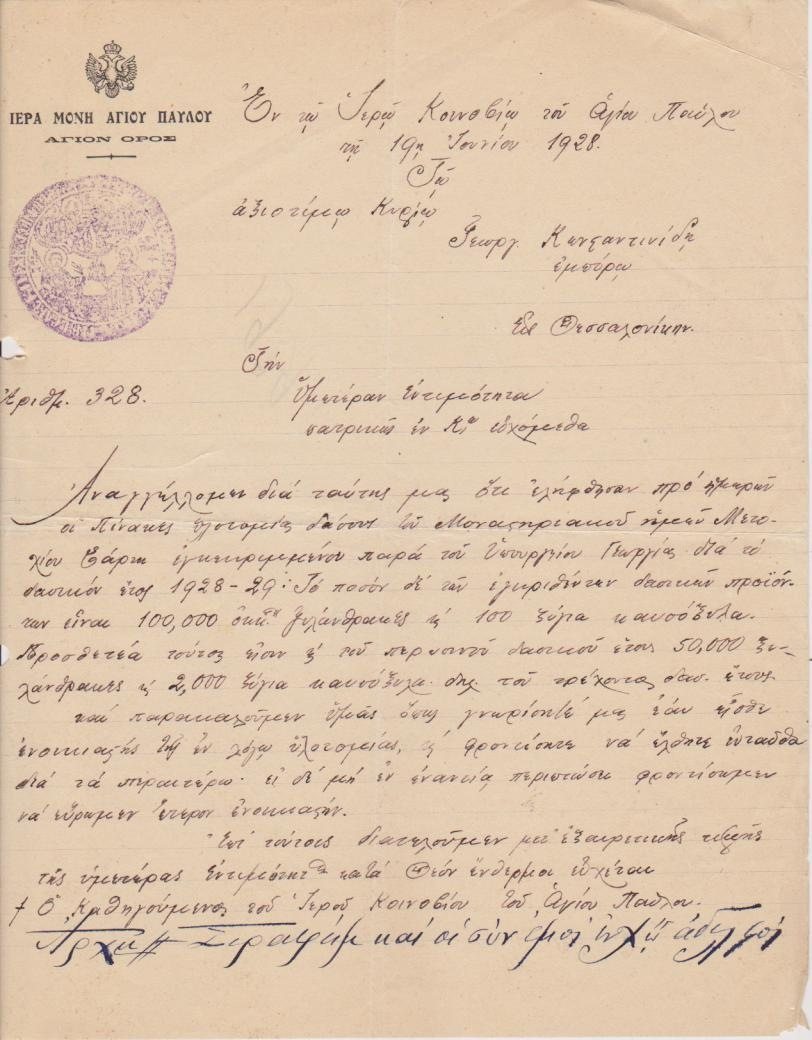 ΙΕΡΑ ΜΟΝΗ ΑΓΙΟΥ ΠΑΥΛΟΥ
ΑΓΙΟΝ ΟΡΟΣ
Ἐν τῷ Ἱερῷ Κοινοβίῳ τοῦ Ἁγίου Παύλου
τῇ 19ῃ Ἰουνίου 1928.
Τῷ
ἀξιοτίμῳ Κυρίῳ
Γεωργ. Κωνσταντινίδῃ
ἐμπόρῳ
Εἰς Θεσσαλονίκην.
Τὴν
Ἀριθμ. 328.
Ὑμετέραν Ἐντιμότητα
πατρικῶς ἐν Κῳ εὐχόμεθα
Ἀναγγέλλομεν διὰ ταύτης μας ὅτι ἐλήφθησαν πρὸ ἡμερῶν
οἱ Πίνακες ὑλοτομίας δάσους τοῦ Μοναστηριακοῦ ἡμῶν Μετο-
χίου Σάρτη ἐγκεκριμμένοι παρὰ τοῦ Ὑπουργείου Γεωργίας διὰ τὸ
δασικὸν ἔτος 1928-29: Τὸ ποσὸν δὲ τῶν ἐγκριθέντων δασικῶν προϊόν-
των εἶναι 100,000 ὀκ. ξυλάνθρακες κ 100 ζύγια καυσόξυλα.
Προσθετέα τούτοις εἰσιν κ τοῦ περυσινοῦ δασικοῦ ἔτους 50,000 ξυ-
λάνθρακες κ 2,000 ζύγια καυσόξυλα. τοῦ τρέχοντος δασ. ἔτους.
καὶ παρακαλοῦμεν ὑμᾶς ὅπως γνωρίσητέ μας ἐὰν εἶσθε
ἐνοικιαστὴς τῆς ἐν λόγῳ ὑλοτομίας, κ φροντίσητε νὰ ἔλθητε ἐνταῦθα
διὰ τὰ περαιτέρω. εἰ δὲ μὴ ἐν ἐναντίᾳ περιπτώσει φροντίσωμεν
νὰ εὕρωμεν ἕτερον ἐνοικιαστήν.
Ἐπὶ τούτοις διατελοῦμεν μετ' ἐξαιρετικῆς τιμῆς
τῆς ὑμετέρας Ἐντιμότητος κατὰ Θεὸν ἔνθερμοι εὐχέται
† Ὁ Καθηγούμενος τοῦ Ἱεροῦ Κοινοβίου τοῦ Ἁγίου Παύλου.
Ἀρχιμ. Σεραφεὶμ καὶ οἱ σὺν ἐμοὶ ἐν Χῷ ἀδελφοί